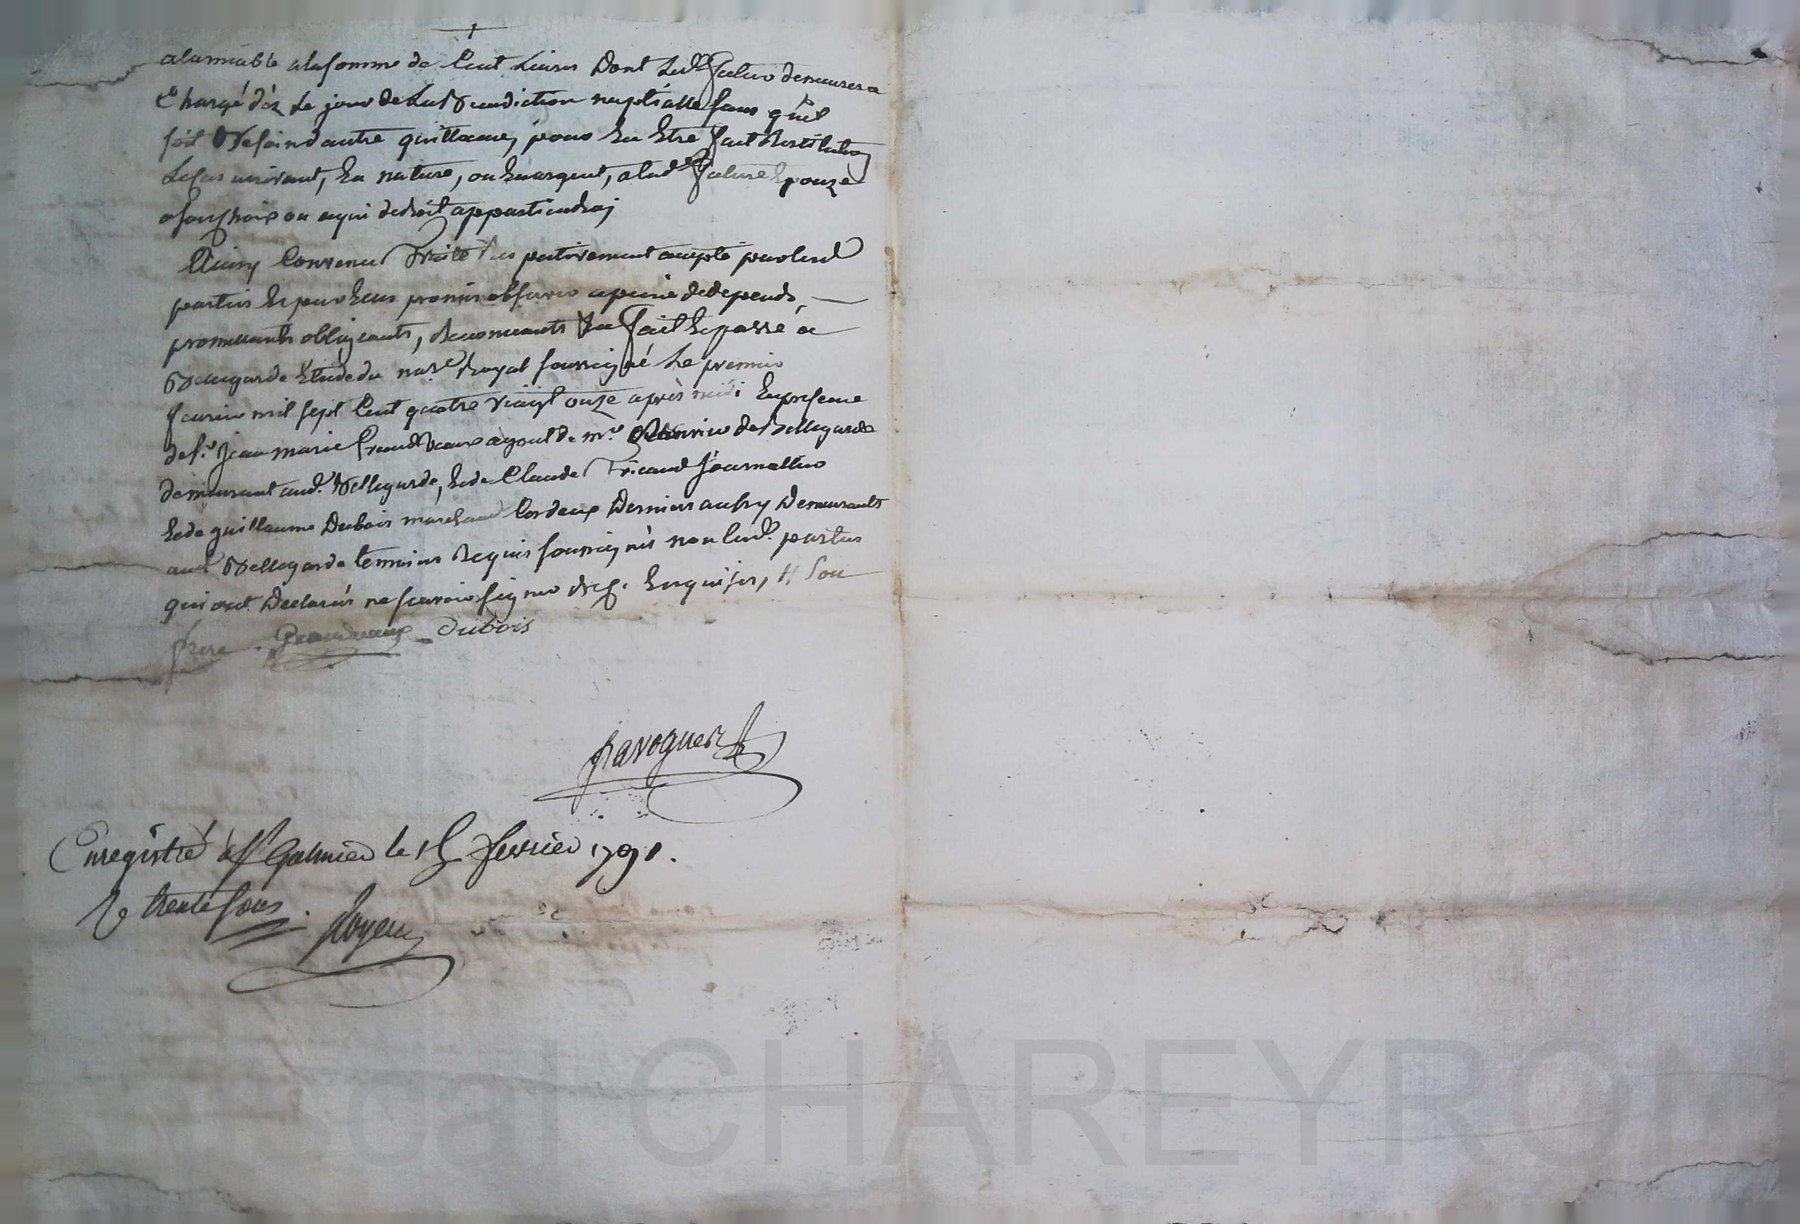 alamiable alasomme de Cent Livres Dont led. futur demeurera
Chargé dèz Le jour de La Benediction nuptialle sans quil
soit Besoin dautre quittance, pour En Etre fait Restitution
Lecas arrivant, En nature, ou Enargent, alad. future Epouze
asonchoix ou aqui dedroit appartiendra;
Ainsy Convenu Traité Et respectivement accepté parlesd
parties Et par Elles promis observer apeine dedepends,
promettants obligeants, Renoncants &a fait Et passé a
Bellegarde Etude du nore. Royal soussigné Le premier
fevrier mil sept Cent quatre vingt onze après midi En presence
de sr. Jean marie Grandvaux agent de mr. de Bellegarde
demeurant aud. Bellegarde, Et de Claude Tricaud Journallier
Et de guillaume Dubois marchand Les deux Derniers aussy Demeurants
aud. Bellegarde temoins Requis soussignés non lesd. parties
qui ont Declarés ne scavoir signer de ce. Enquises, Son
frere. Grandvaux Dubois
Ravogner
Enregistré à St Galmier le 15 fevrier 1791.
R trente sous. Royer
Pascal CHAREYRON